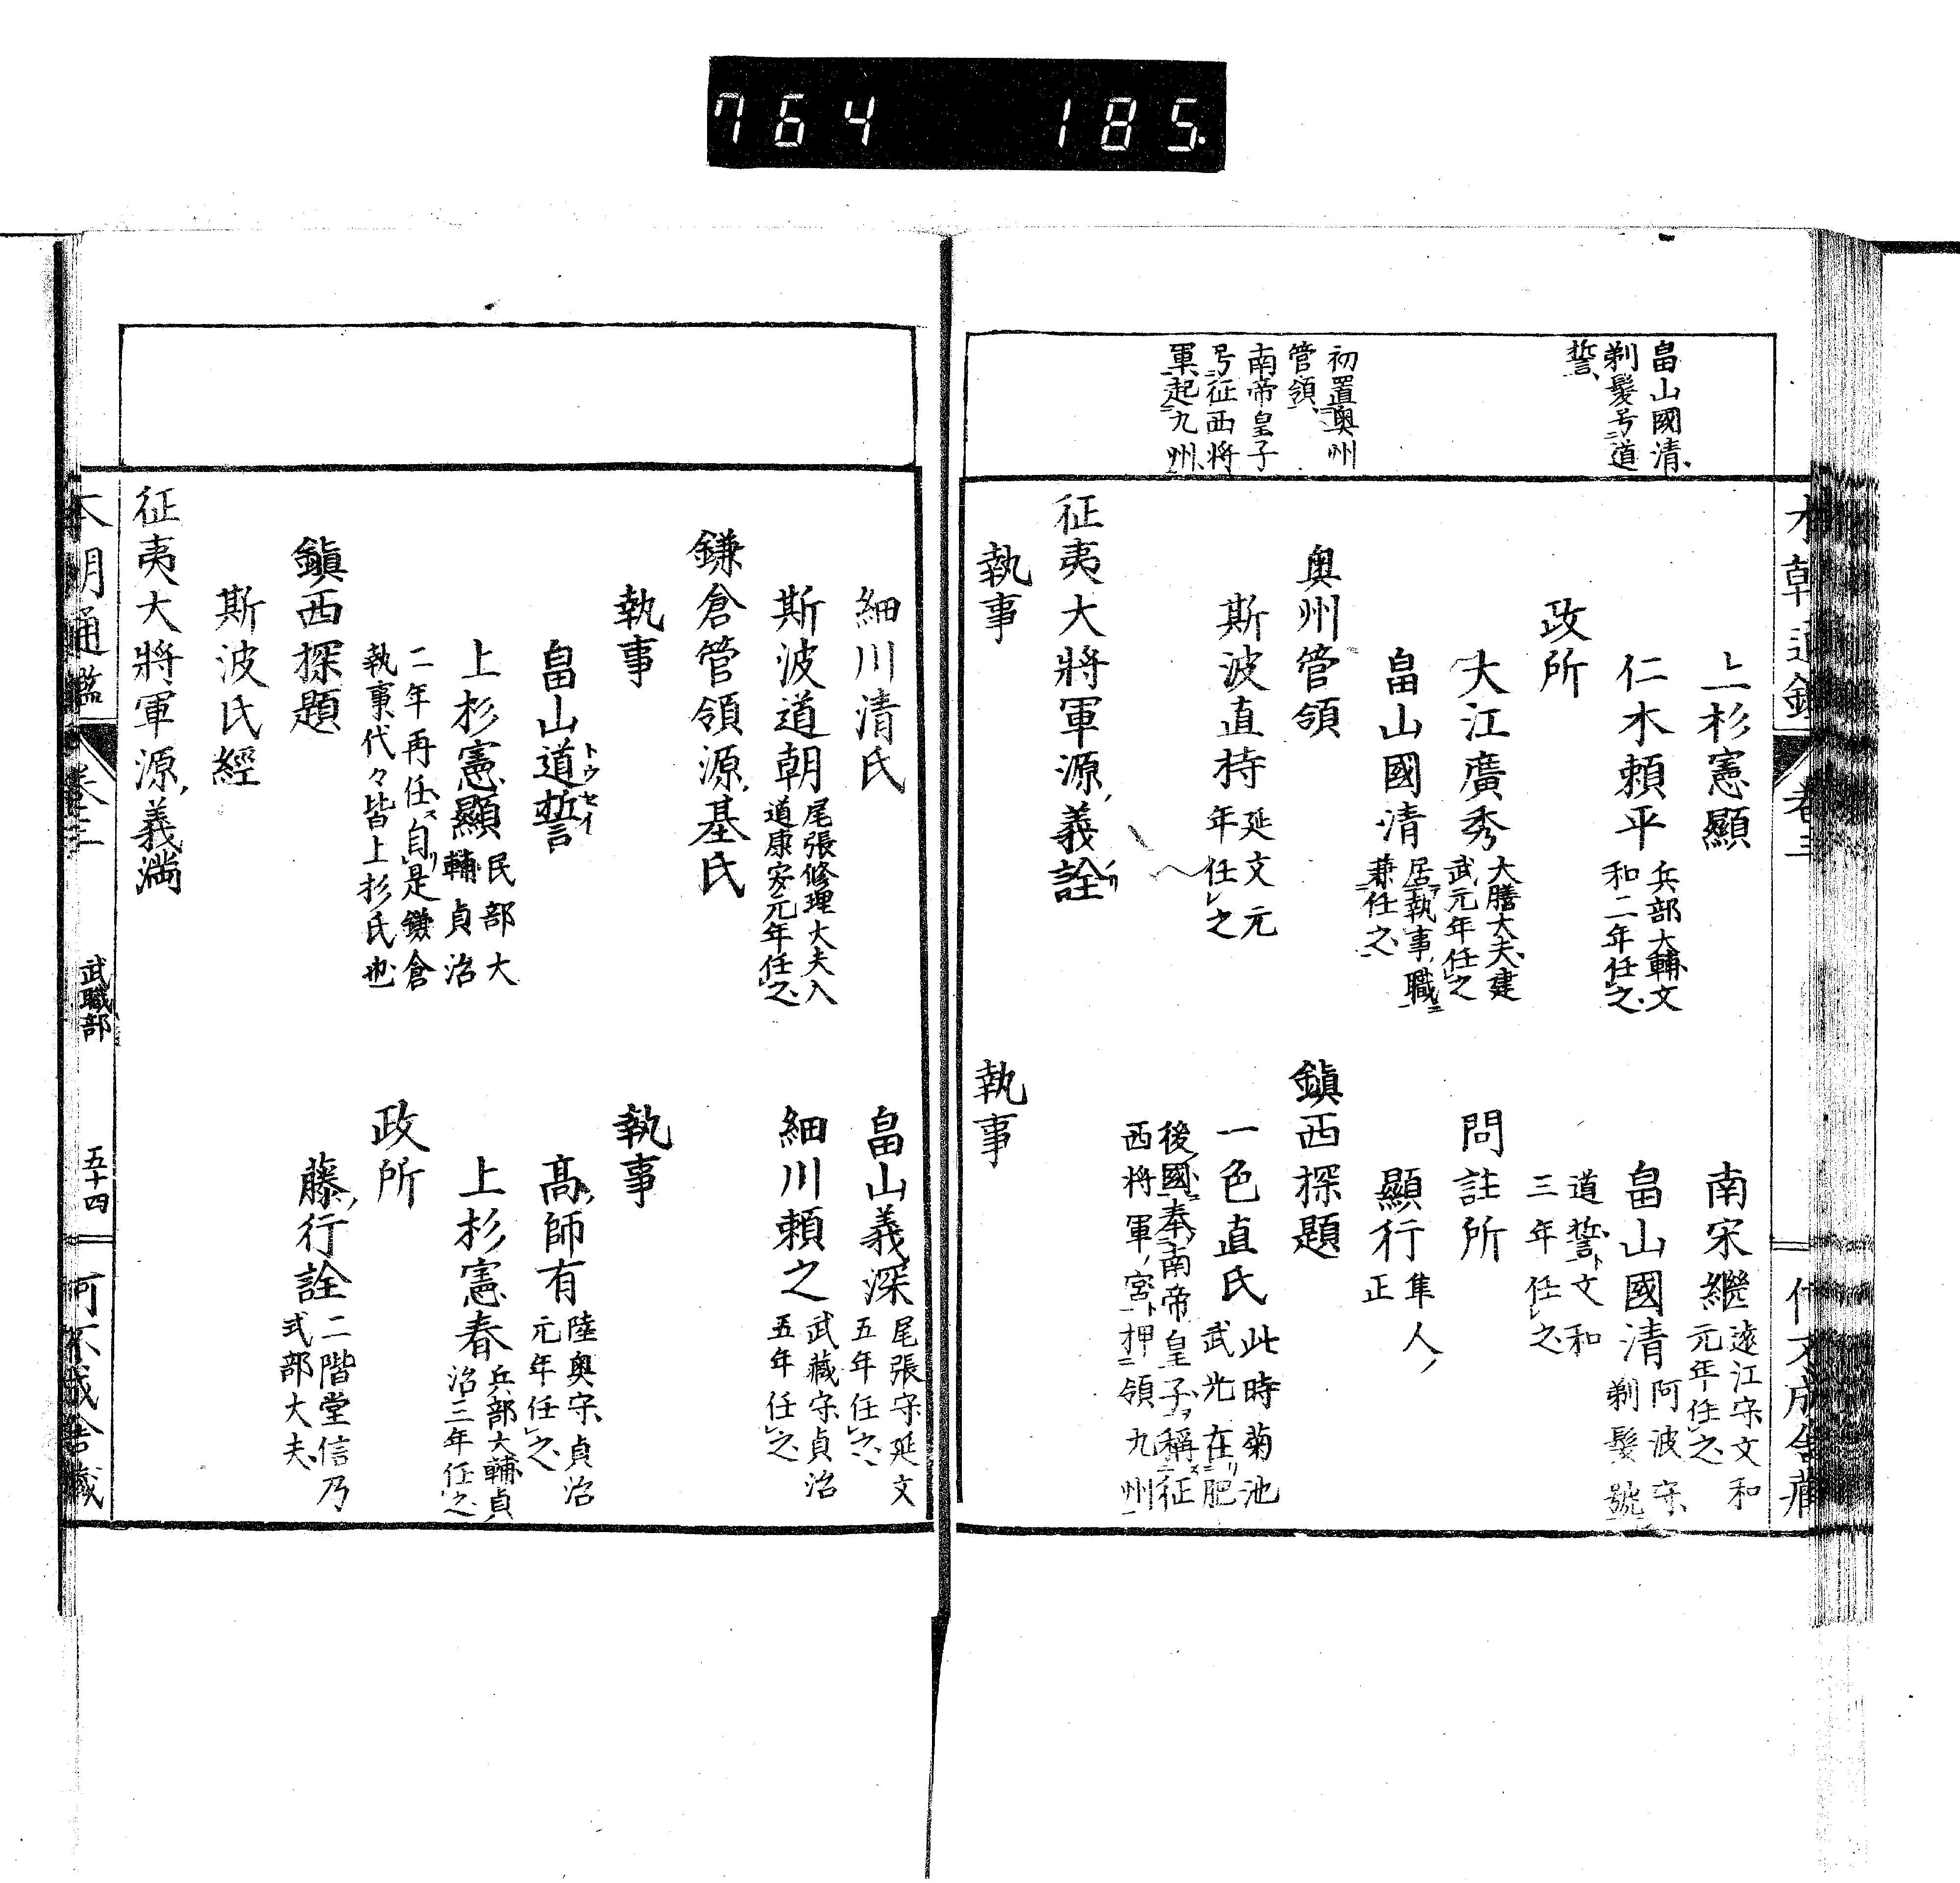 764 185
畠山國清
剃髮号道
誓
初置奥州
管領
南帝皇子
号征西将
軍起九州
上杉憲顯
南宋繼 遠江守文和
元年任之
仁木頼平 兵部大輔文
和二年任之
畠山國清 阿波守
剃髮號
道誓ト文和
三年任之
政所
大江廣秀 大膳大夫建
武元年任之
問註所
畠山國清 居執事職
兼任之
顯行 隼人
正
奥州管領
鎭西探題
斯波直持 延文元
年任之
一色直氏 此時菊池
武光在肥
後國奉南帝皇子稱征
西将軍宮ト押領九州
征夷大將軍源義詮
執事
執事
細川清氏
畠山義深 尾張守延文
五年任之
斯波道朝 尾張修理大夫入
道康安元年任之
細川頼之 武藏守貞治
五年任之
鎌倉管領源基氏
執事
執事
畠山道誓 トウセイ
高師有 陸奥守貞治
元年任之
上杉憲顯 民部大
輔貞治
二年再任ス自是鎌倉
執事代々皆上杉氏也
上杉憲春 兵部大輔貞
治三年任之
政所
鎭西探題
藤行詮 二階堂信乃
式部大夫
斯波氏經
征夷大將軍源義満
本朝通鑑 卷三 武職部 五十四